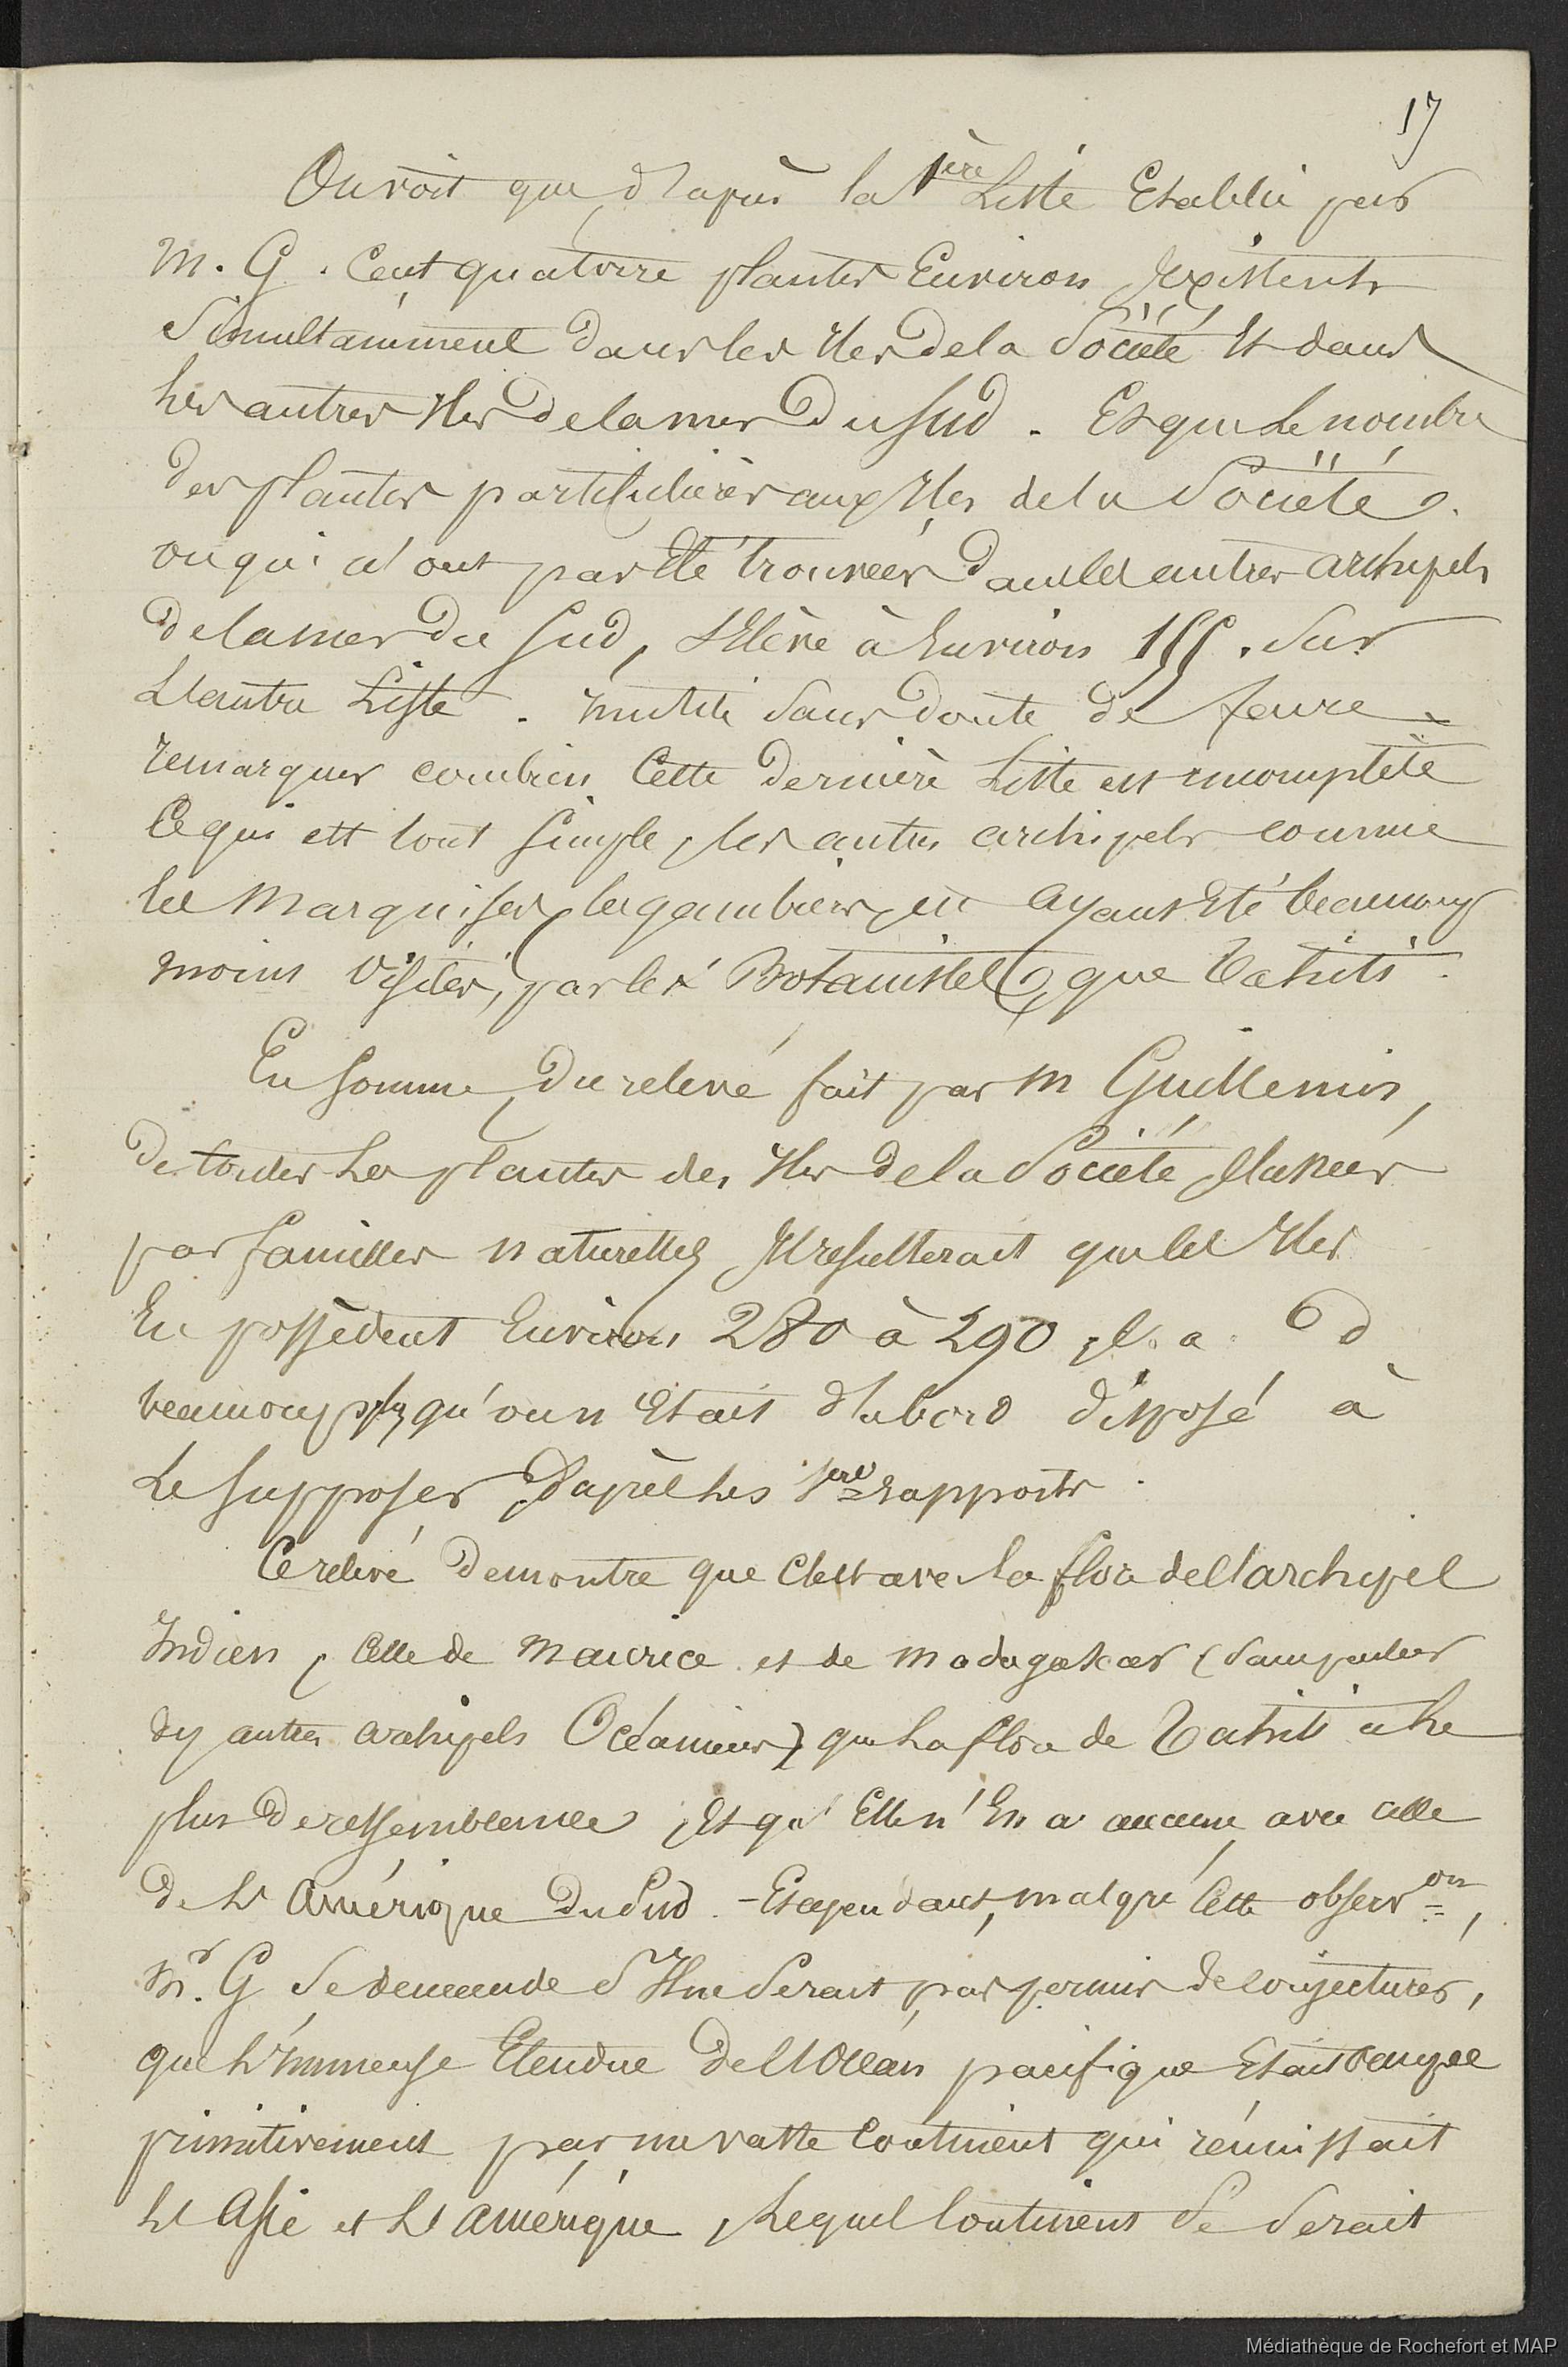 17
On voit que d'après la 1ère Liste Etablie par
M. G. Cent quatorze plantes Environ Existent
Simultanément dans les Iles de la Société Et dans
les autres Iles de la mer Du Sud. Et que le nombre
des plantes particulières aux Iles de la Société,
ou qui n'ont pas Eté trouvées dans les autres archipels
de la mer du Sud, s'Elève à Environ 155. Sur
L'autre Liste. Inutile sans doute de faire
remarquer combien Cette Dernière Liste est incomplète
Ce qui est tout Simple, les autres archipels comme
les Marquises, les gambiers, ayant Eté beaucoup
moins visités, par les Botanistes, que Tahiti.
En Somme, Du relevé fait par M Guillemin,
De toutes les plantes des Iles de la Société, classées
par familles naturelles, Il resulterait que les Iles
En possèdent Environ 280 à 290
beaucoup plus qu'on n'Etait d'abord disposé à
Le Supposer, D'après les 1ers rapports.
Ce relevé Demontre que C'est avec la flore de l'archipel
Indien, Celle de Maurice et de Madagascar (sans parler
des autres archipels Océaniens) que la flore de Tahiti a le
plus De ressemblance, Et qu'Elle n'En a aucune avec celle
De L'Amérique Du Sud. - Et cependant, malgré Cette observon,
Mr. G Se demande S'Il ne Serait pas permis de conjecturer,
que L'immense Etendue De l'Océan pacifique Etait occupée
primitivement par un vaste Continent qui réunissait
L'Asie et L'Amérique, Lequel Continent Se Serait
Médiathèque de Rochefort et MAP